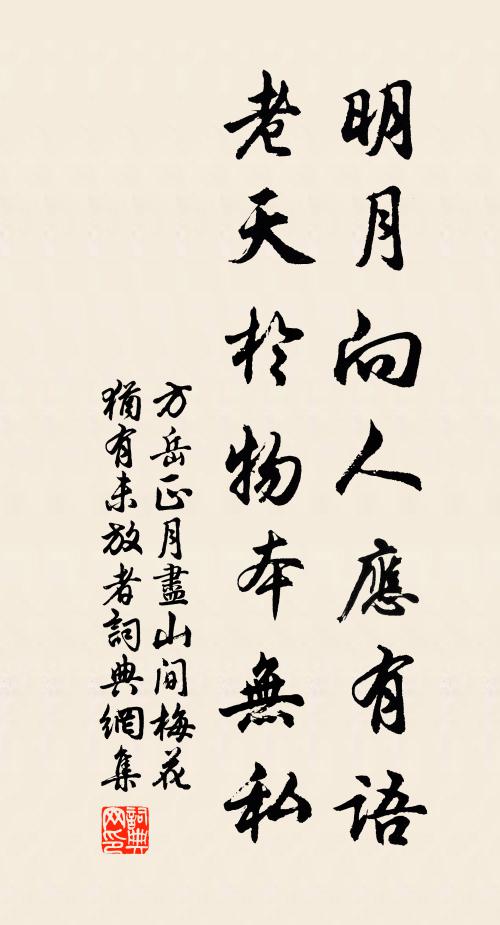 明月向人應有語
老天於物本無私
方岳正月盡山间梅花
猶有未放者詞典網集
詞典
网印